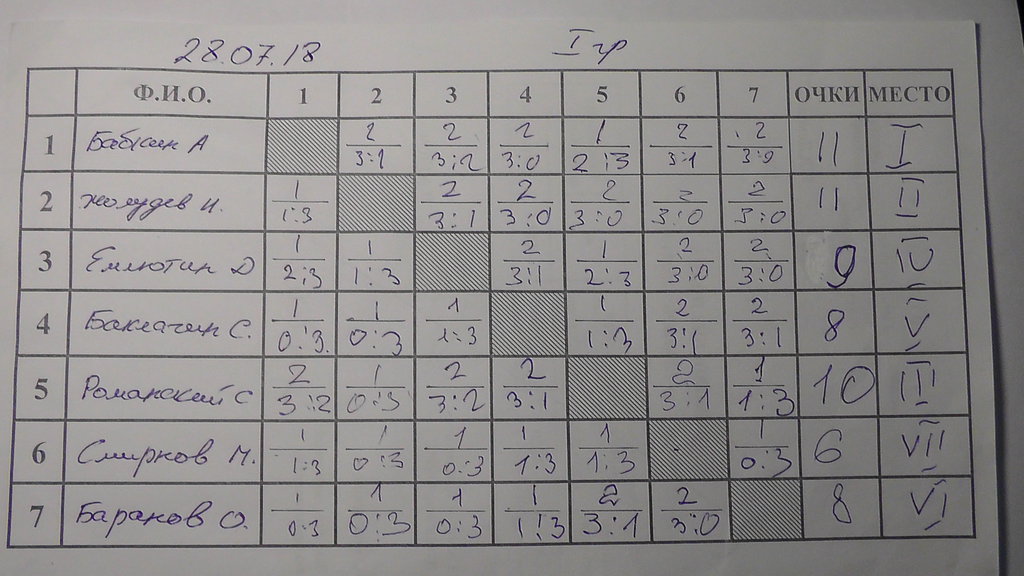 28.07.18 I гр
Ф.И.О. 1 2 3 4 5 6 7 ОЧКИ МЕСТО
1 Бабкин А 2 3:1 2 3:2 2 3:0 1 2:3 2 3:1 2 3:0 11 I
2 Желудев И. 1 1:3 2 3:1 2 3:0 2 3:0 2 3:0 2 3:0 11 II
3 Емлютин Д 1 2:3 1 1:3 2 3:1 1 2:3 2 3:0 2 3:0 9 IV
4 Баклагин С. 1 0:3 1 0:3 1 1:3 1 1:3 2 3:1 2 3:1 8 V
5 Романский С 2 3:2 1 0:3 2 3:2 2 3:1 2 3:1 1 1:3 10 III
6 Смирнов М. 1 1:3 1 0:3 1 0:3 1 1:3 1 1:3 1 0:3 6 VII
7 Баранов О. 1 0:3 1 0:3 1 0:3 1 1:3 2 3:1 2 3:0 8 VI